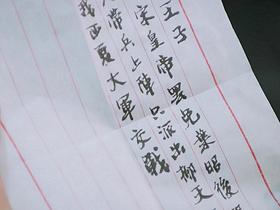 王子
宋皇帝罢免業昭後
帶兵上陣只派出柳天
我西夏大軍交戰